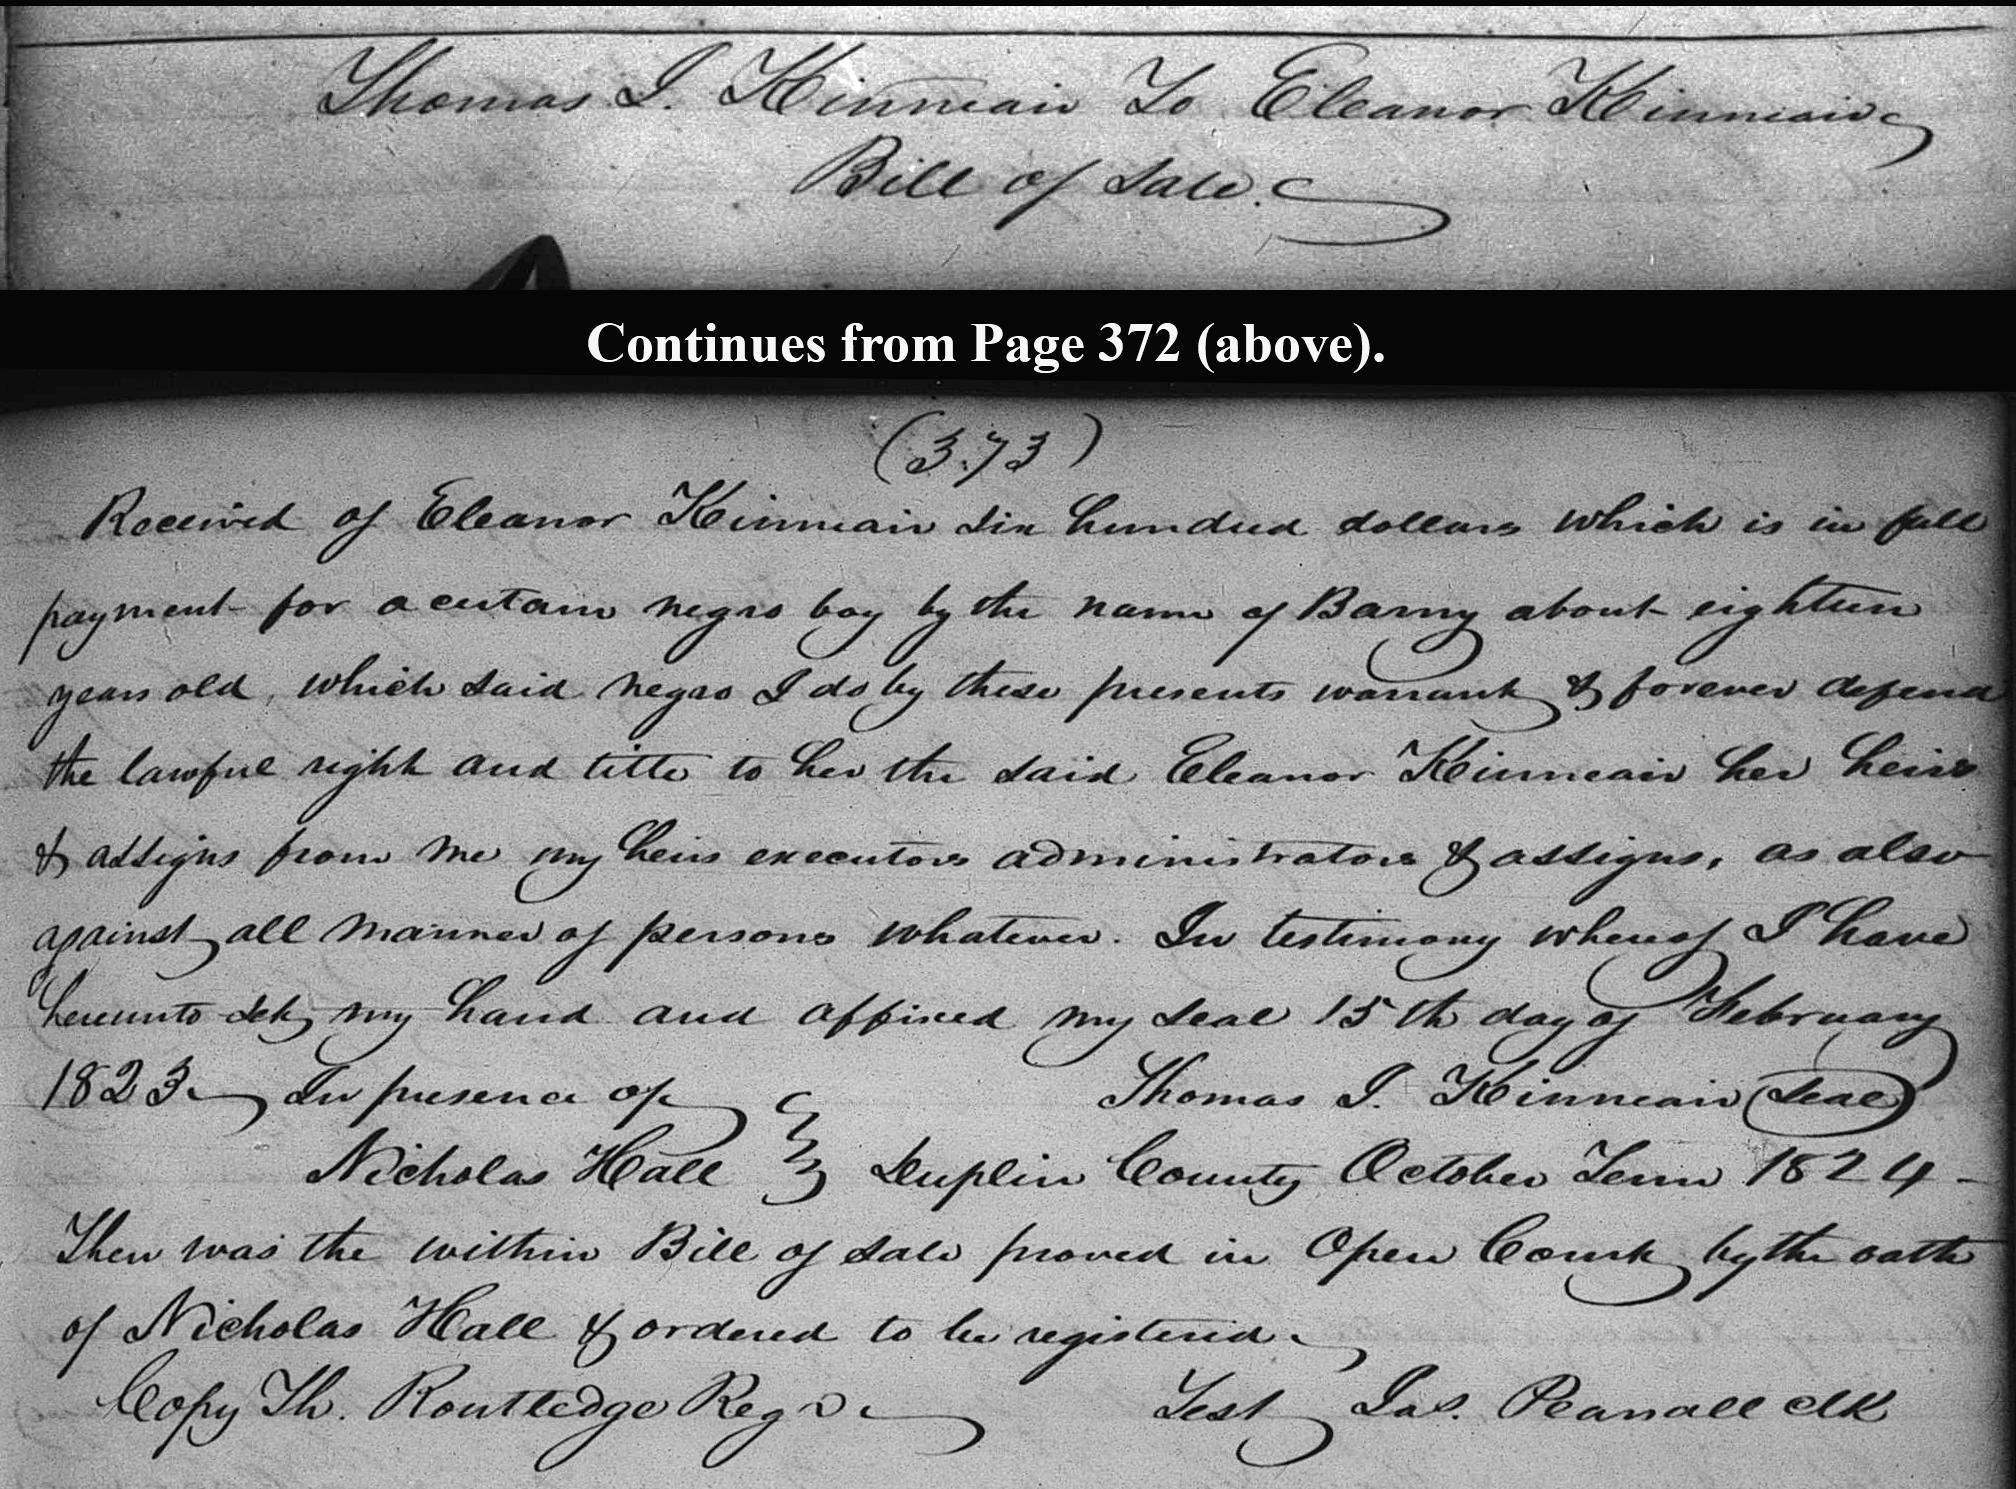 Thomas I. Kinneair To Eleanor Kinneair
Bill of Sale.
Continues from Page 372 (above).
(373)
Received of Eleanor Kinneair Six hundred dollars which is in full
payment for a certain negro boy by the name of Barny about eighteen
years old, which said negro I do by these presents warrant & forever defend
the lawful right and title to her the said Eleanor Kinneair her heirs
& assigns from me my heirs executors administrators & assigns, as also
against all manner of persons whatever. In testimony whereof I have
hereunto set my hand and affixed my seal 15th day of February
1823. In presence of Thomas I. Kinneair (Seal)
Nicholas Hall Duplin County October Term 1824 -
Then was the within Bill of Sale proved in Open Court by the oath
of Nicholas Hall & ordered to be registered.
Copy Th. Routledge Regr. Test Jas. Pearsall clk